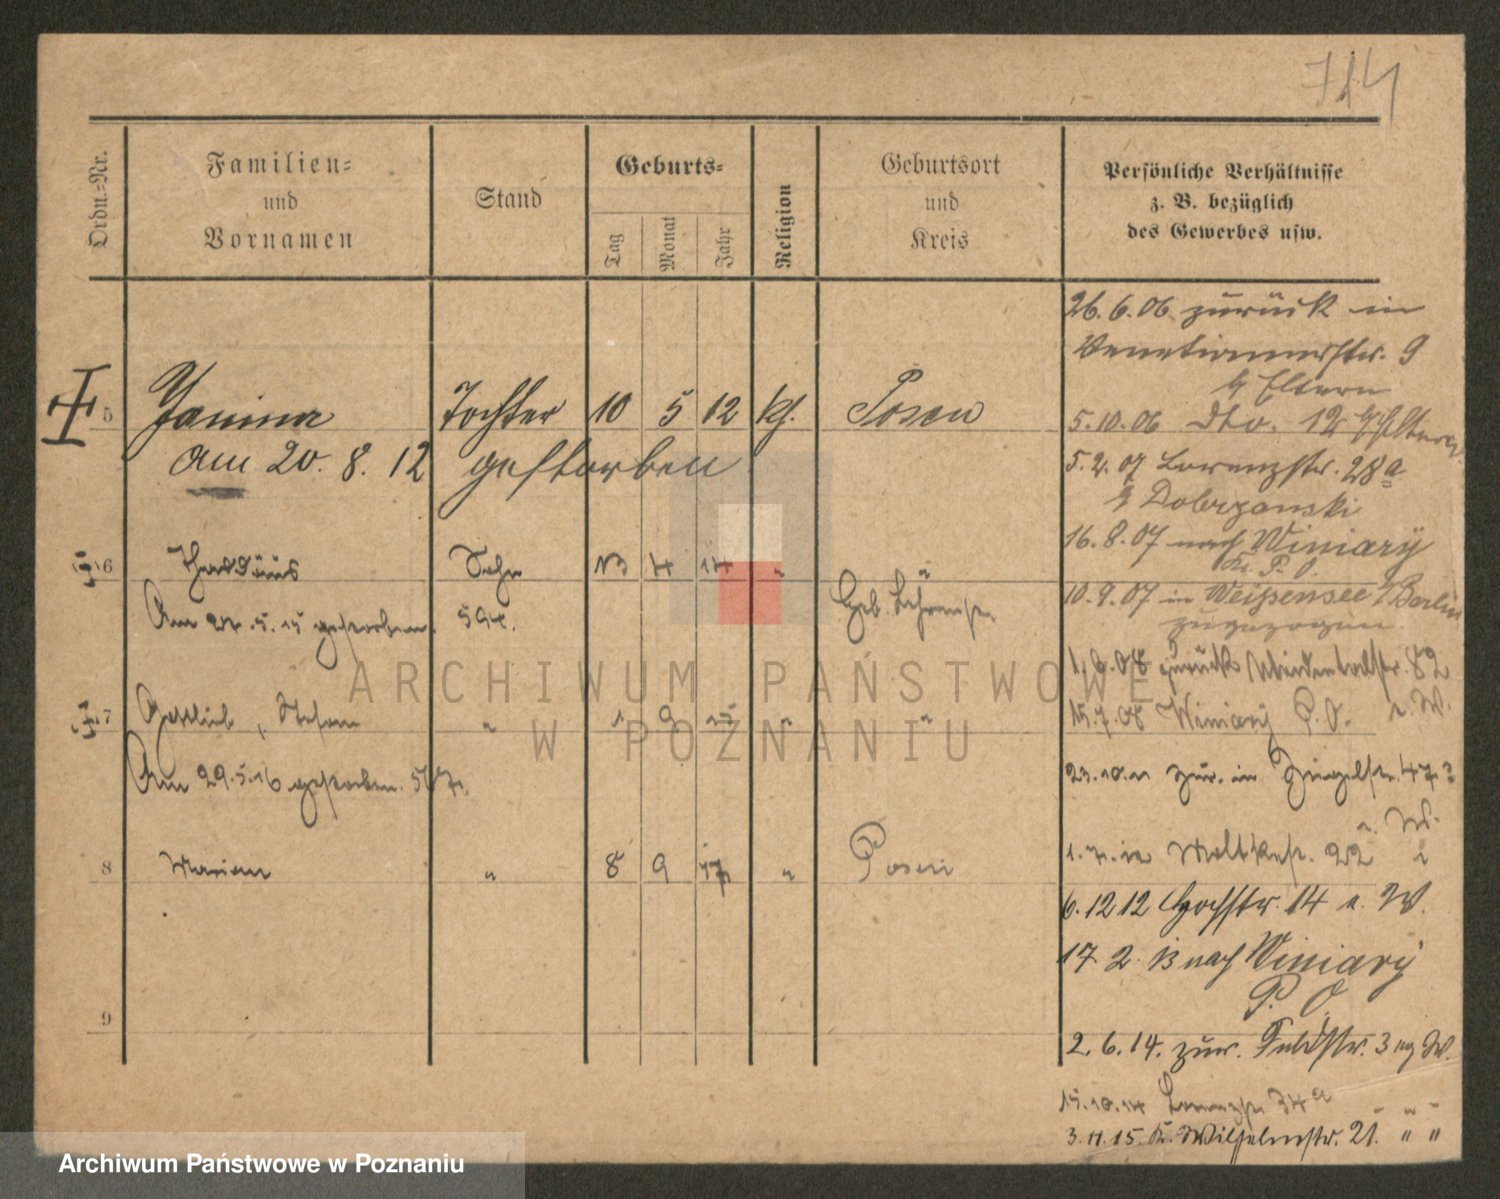 714
Ordn.-Nr.
Familien-
und
Vornamen
Stand
Geburts-
Tag
Monat
Jahr
Religion
Geburtsort
und
Kreis
Persönliche Verhältnisse
z. B. bezüglich
des Gewerbes usw.
5 Janina Tochter 10 5 12 kf. Posen
am 20. 8. 12 gestorben
6 Thaddäus Sohn 13 4 14 " "
Am 24. 5. 15 gestorben. 594.
Geb.
7 Gottlieb, Stefan " 1 9 15 " "
Am 29. 5. 16 gestorben.
8 Marian " 8 9 17 " Posen
9
26. 6. 06 zurück in
Venetianerstr. 9
b/ Eltern
5. 10. 06 dto. 12 b/ Eltern
5. 2. 07 Lorenzstr. 28a
b/ Dobrzanski
16. 8. 07 nach Winiary
Kr. P. O.
10. 9. 07 in Weißensee b/ Berlin
zugezogen
1. 6. 08 zurück 82
15. 7. 08 Winiary P. O.
23. 10. 11 zur. in Ziegelstr. 47
1. 7. 12 Moltkestr. 22
6. 12 12 Hochstr. 14 a. W.
17 2. 13 nach Winiary
P. O.
2. 6. 14. zur. Feldstr. 3
15. 10. 14 Lorenzstr. 34a
3. 11. 15. K. Wilhelmstr. 21. " "
ARCHIWUM PAŃSTWOWE
W POZNANIU
Archiwum Państwowe w Poznaniu